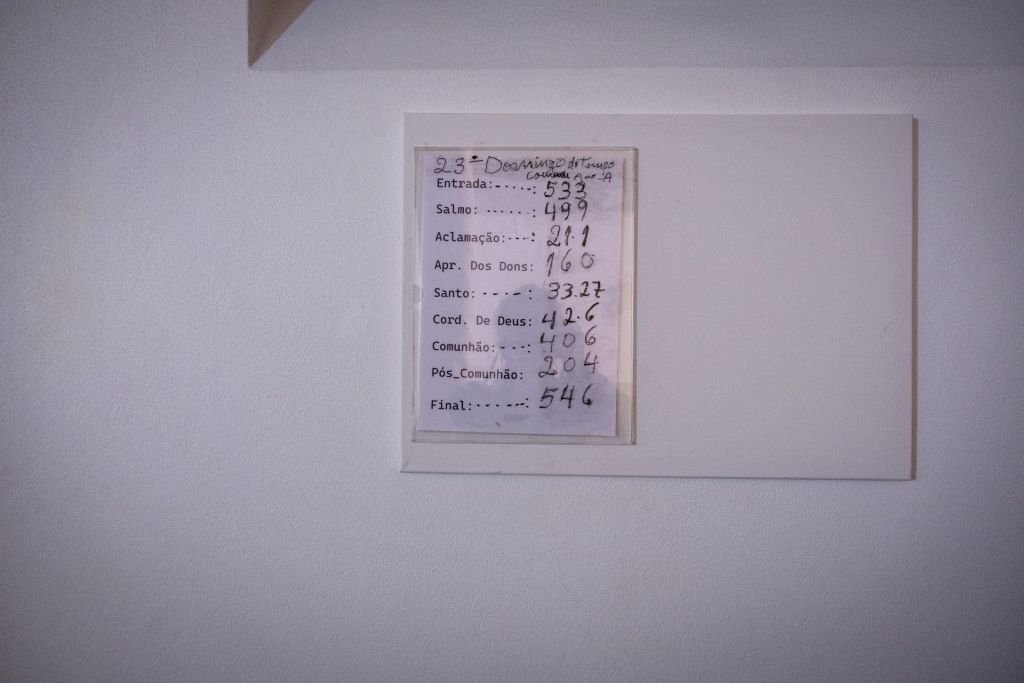 23º Domingo do Tempo
Comum Ano A
Entrada:-----: 533
Salmo: ......: 499
Aclamação:---: 21.1
Apr. Dos Dons: 160
Santo: ----: 33.27
Cord. De Deus: 42.6
Comunhão:---: 406
Pós_Comunhão: 204
Final:------: 546